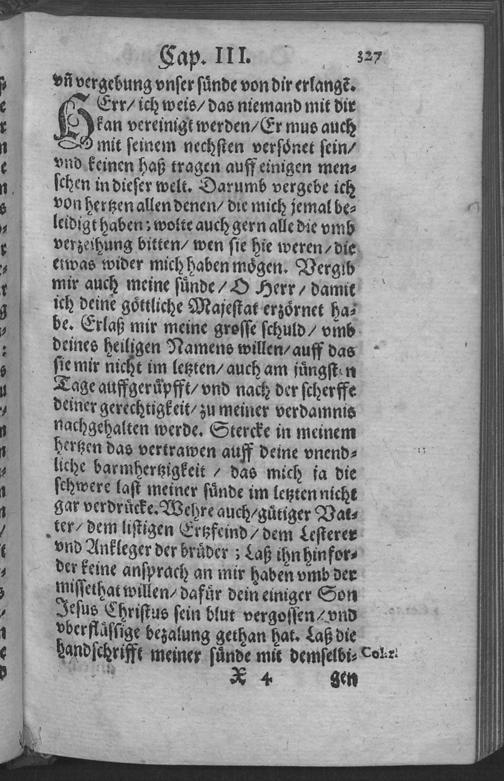 Cap. III. 327
vñ vergebung vnser sünde von dir erlangē.
HErr/ ich weis/ das niemand mit dir
kan vereinigt werden/ Er mus auch
mit seinem nechsten versönet sein/
vnd keinen haß tragen auff einigen men⸗
schen in dieser welt. Darumb vergebe ich
von hertzen allen denen/ die mich jemal be⸗
leidigt haben; wolte auch gern alle die vmb
verzeihung bitten/ wen sie hie weren/ die
etwas wider mich haben mögen. Vergib
mir auch meine sünde/ O Herr/ damit
ich deine göttliche Majestat erzörnet ha⸗
be. Erlaß mir meine grosse schuld/ vmb
deines heiligen Namens willen/ auff das
sie mir nicht im letzten/ auch am jüngsten
Tage auffgerüpfft/ vnd nach der scherffe
deiner gerechtigkeit/ zu meiner verdamnis
nachgehalten werde. Stercke in meinem
hertzen das vertrawen auff deine vnend⸗
liche barmhertzigkeit/ das mich ja die
schwere last meiner sünde im letzten nicht
gar verdrücke. Wehre auch/ gütiger Vat⸗
ter/ dem listigen Ertzfeind/ dem Lesterer
vnd Ankleger der brüder; Laß ihn hinfor⸗
der keine ansprach an mir haben vmb der
missethat willen/ dafür dein einiger Son
Jesus Christus sein blut vergossen/ vnd
vberflüssige bezalung gethan hat. Laß die
handschrifft meiner sünde mit demselbi⸗
X 4 gen